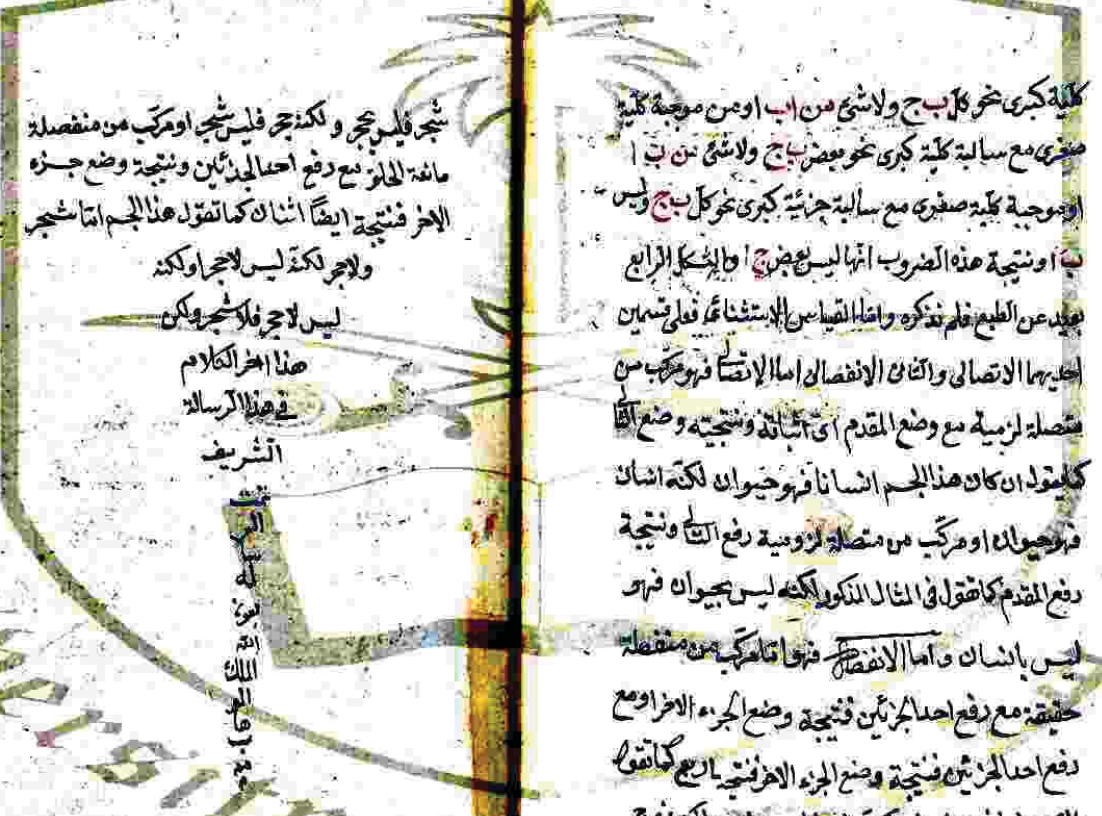 كلية كبرى نحو كل ب ج ولا شئ من ا ب او من موجبة كلية
صغرى مع سالبة كلية كبرى نحو بعض ب ج ولا شئ من ب ا
او موجبة كلية صغرى مع سالبة جزئية كبرى نحو كل ب ج وليس
ب ا ونتيجة هذه الضروب انها ليس بعض ج ا والشكل الرابع
بعيد عن الطبع فلم نذكره واما القياس الاستثنائى فعلى قسمين
احديهما الاتصالى والثانى الانفصالى اما الاتصالى فهو مركب من
متصلة لزمية مع وضع المقدم اى اثباته ونتيجته وضع التالى
كما يقول ان كان هذا الجسم انسانا فهو حيوان لكنه انسان
فهو حيوان او مركب من متصلة لزومية رفع التالى ونتيجة
رفع المقدم كما تقول فى المثال المذكور لكنه ليس بحيوان فهو
ليس بانسان واما الانفصالى فهو اما مركب من منفصلة
حقيقة مع رفع احد الجزئين فنتيجة وضع الجزء الاخر او مع
رفع احد الجزئين فنتيجة وضع الجزء الاخر فنتيجه باربع كما تقول
شجر فليس بحجر و لكنه حجر فليس شجر او مركب من منفصلة
مانعة الخلو مع رفع احد الجذئين ونتيجة وضع جزء
الاخر فنتيجة ايضاً اثنان كما تقول هذا الجسم اما شجر
ولا حجر لكنه ليس لا حجر او لكنه
ليس لا حجر فلا شجر ولكن
هذا اخر الكلام
فى هذا الرسالة
الشريف
تمت
الر
سا
له
بعون
الله
الملك
الو
ها
ب